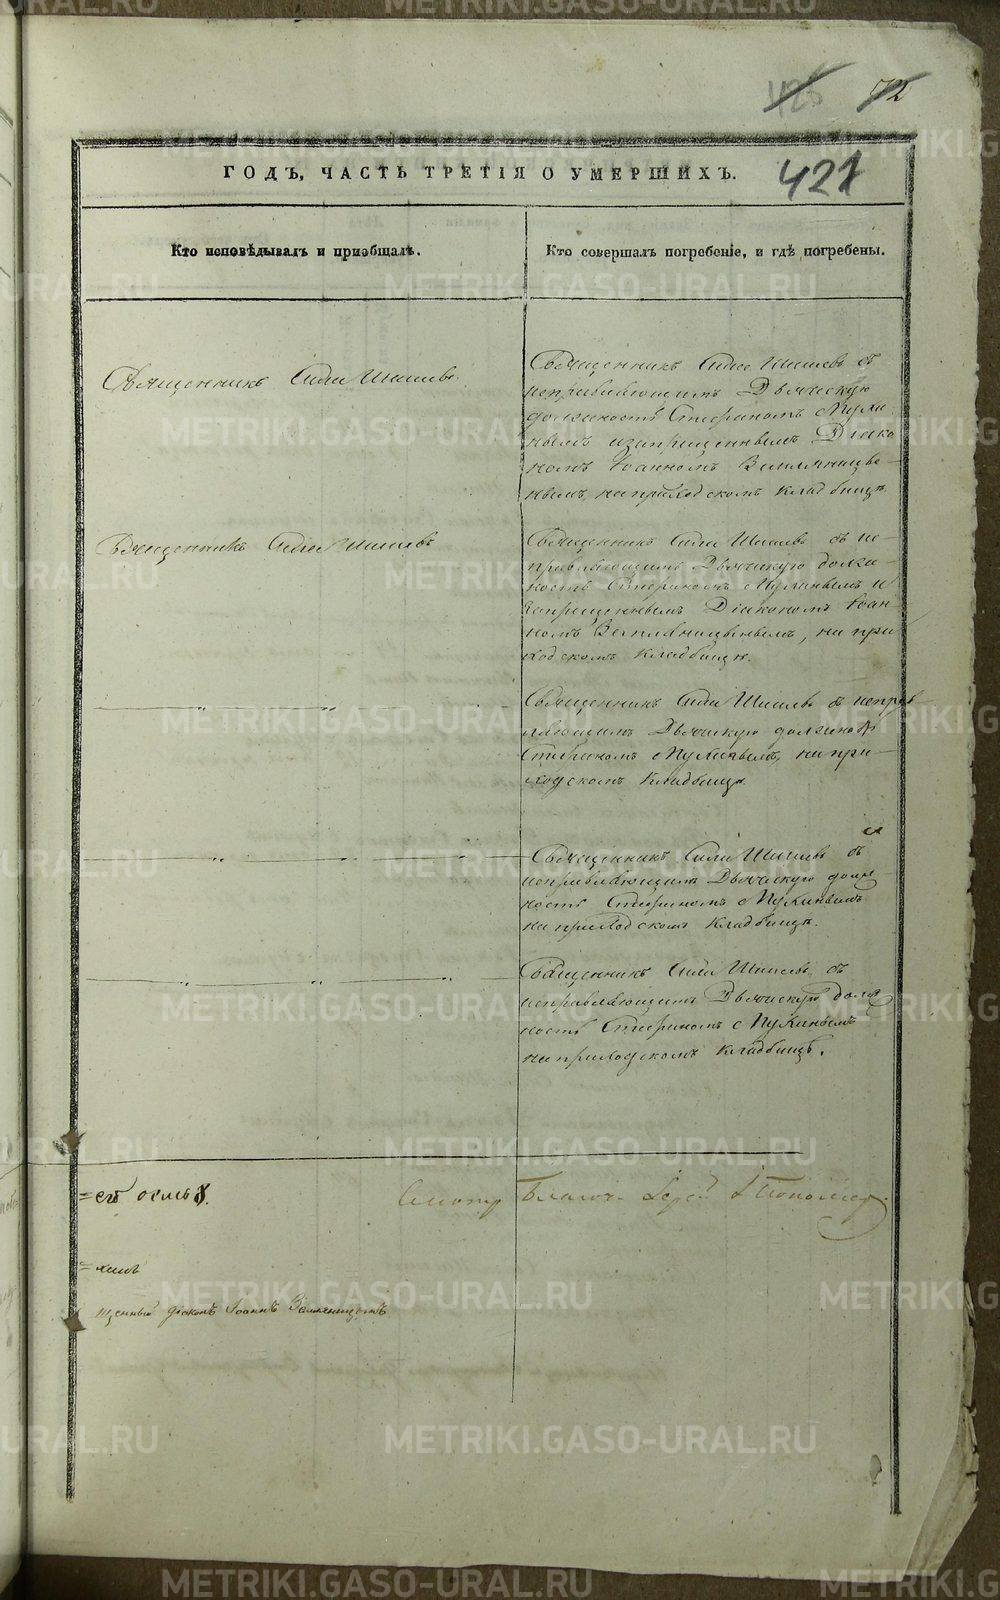 72
421
ГОДЪ, ЧАСТЬ ТРЕТІЯ О УМЕРШИХЪ.
Кто исповѣдывалъ и пріобщалъ.
Кто совершалъ погребеніе, и гдѣ погребены.
Священникъ Сила Шишевъ
Священникъ Сила Шишевъ съ
исправляющимъ Дьяческую
должность Стефаномъ
нымъ и запрещеннымъ Діако
номъ Іоанномъ
нымъ, на приходскомъ кладбищѣ.
Священникъ Сила Шишевъ
Священникъ Сила Шишевъ съ ис
правляющимъ Дьяческую долж
ность Стефаномъ и
запрещеннымъ Діакономъ Іоан
номъ, на при
ходскомъ кладбищѣ.
Священникъ Сила Шишевъ съ исправ
ляющимъ Дьяческую должность
Стефаномъ, на при
ходскомъ кладбищѣ.
Священникъ Сила Шишевъ съ
исправляющимъ Дьяческую долж
ность Стефаномъ
на приходскомъ кладбищѣ.
Священникъ Сила Шишевъ съ
исправляющимъ Дьяческую долж
ность Стефаномъ
на приходскомъ кладбищѣ.
щенный діаконъ Іоаннъ
METRIKI.GASO-URAL.RU